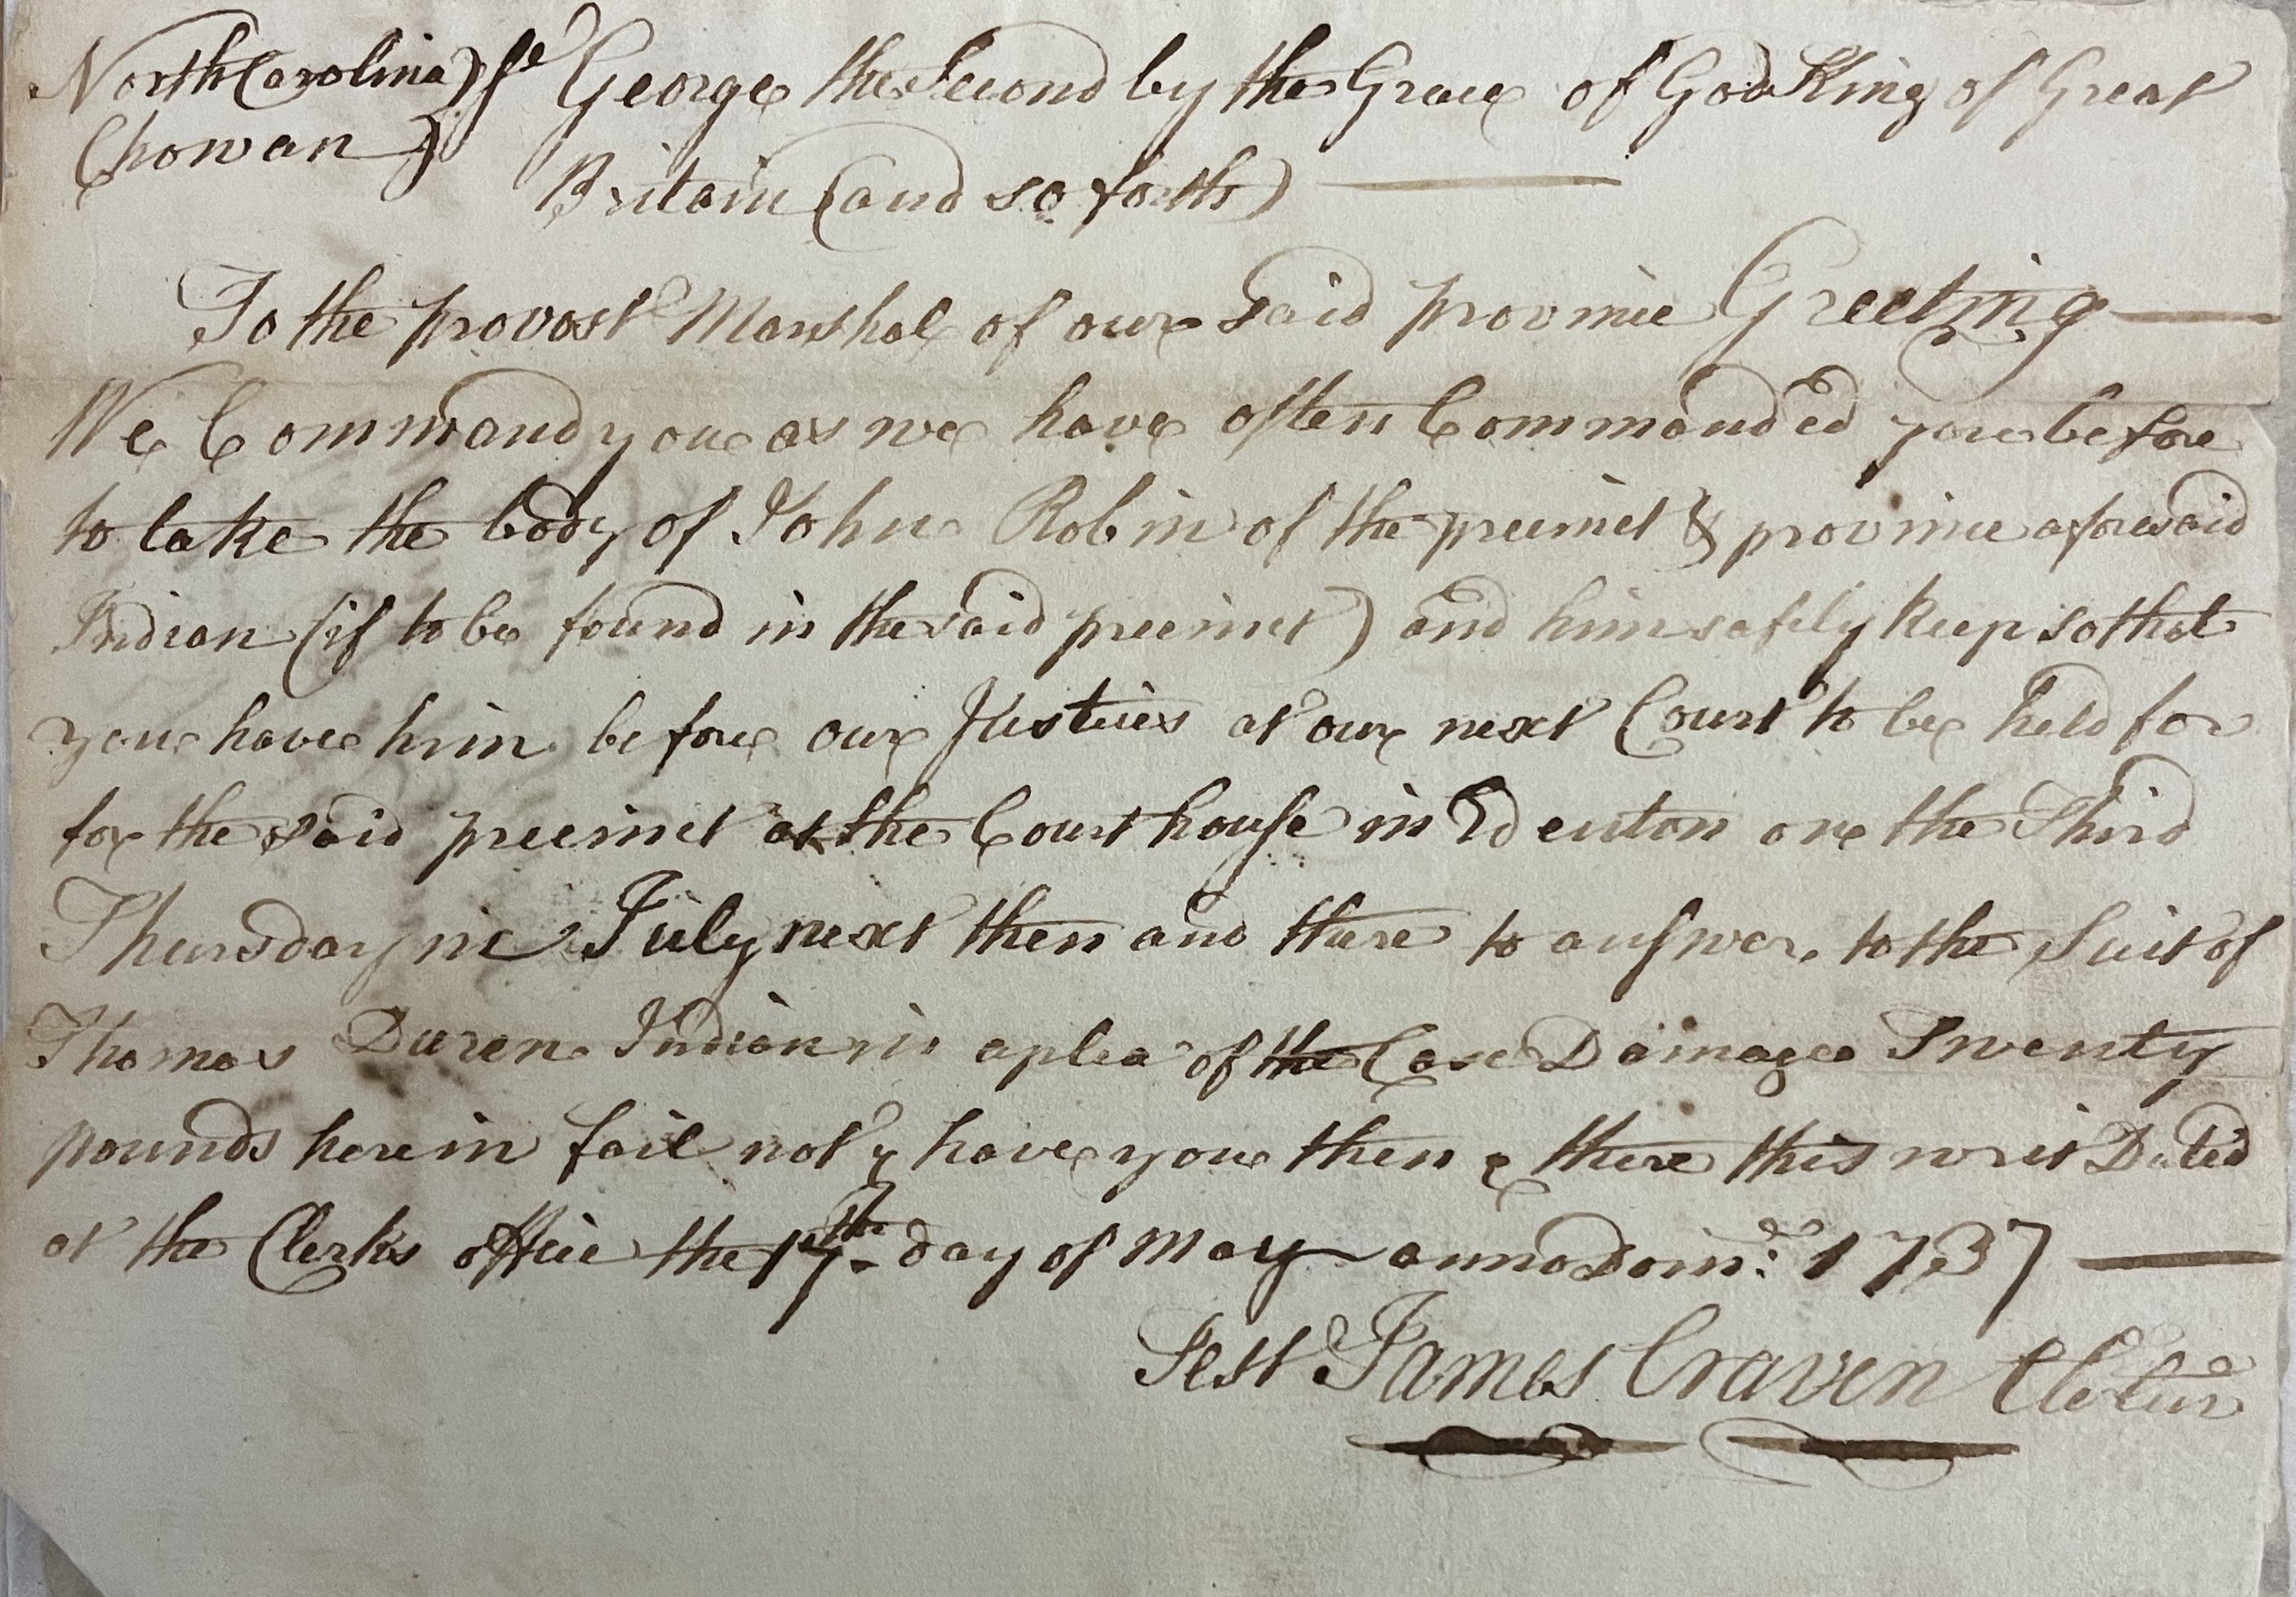 North Carolina } ss George the Second by the Grace of God King of Great
Chowan } Britain (and so forth)
To the provost Marshal of our said province Greeting
We Command you as we have often Commanded you before
to take the body of John Robin of the precinct & province aforesaid
Indian (if to be found in the said precinct) and him safely keep so that
you have him before our Justices at our next Court to be held for
for the said precinct at the Courthouse in Edenton on the Third
Thursday in July next then and there to answer to the Suit of
Thomas Duren Indian in a plea of the Case Damage Twenty
pounds herein fail not & have you then & there this writ Dated
at the Clerks office the 17th day of May anno Dom: 1737
Test James Craven Cler Cur